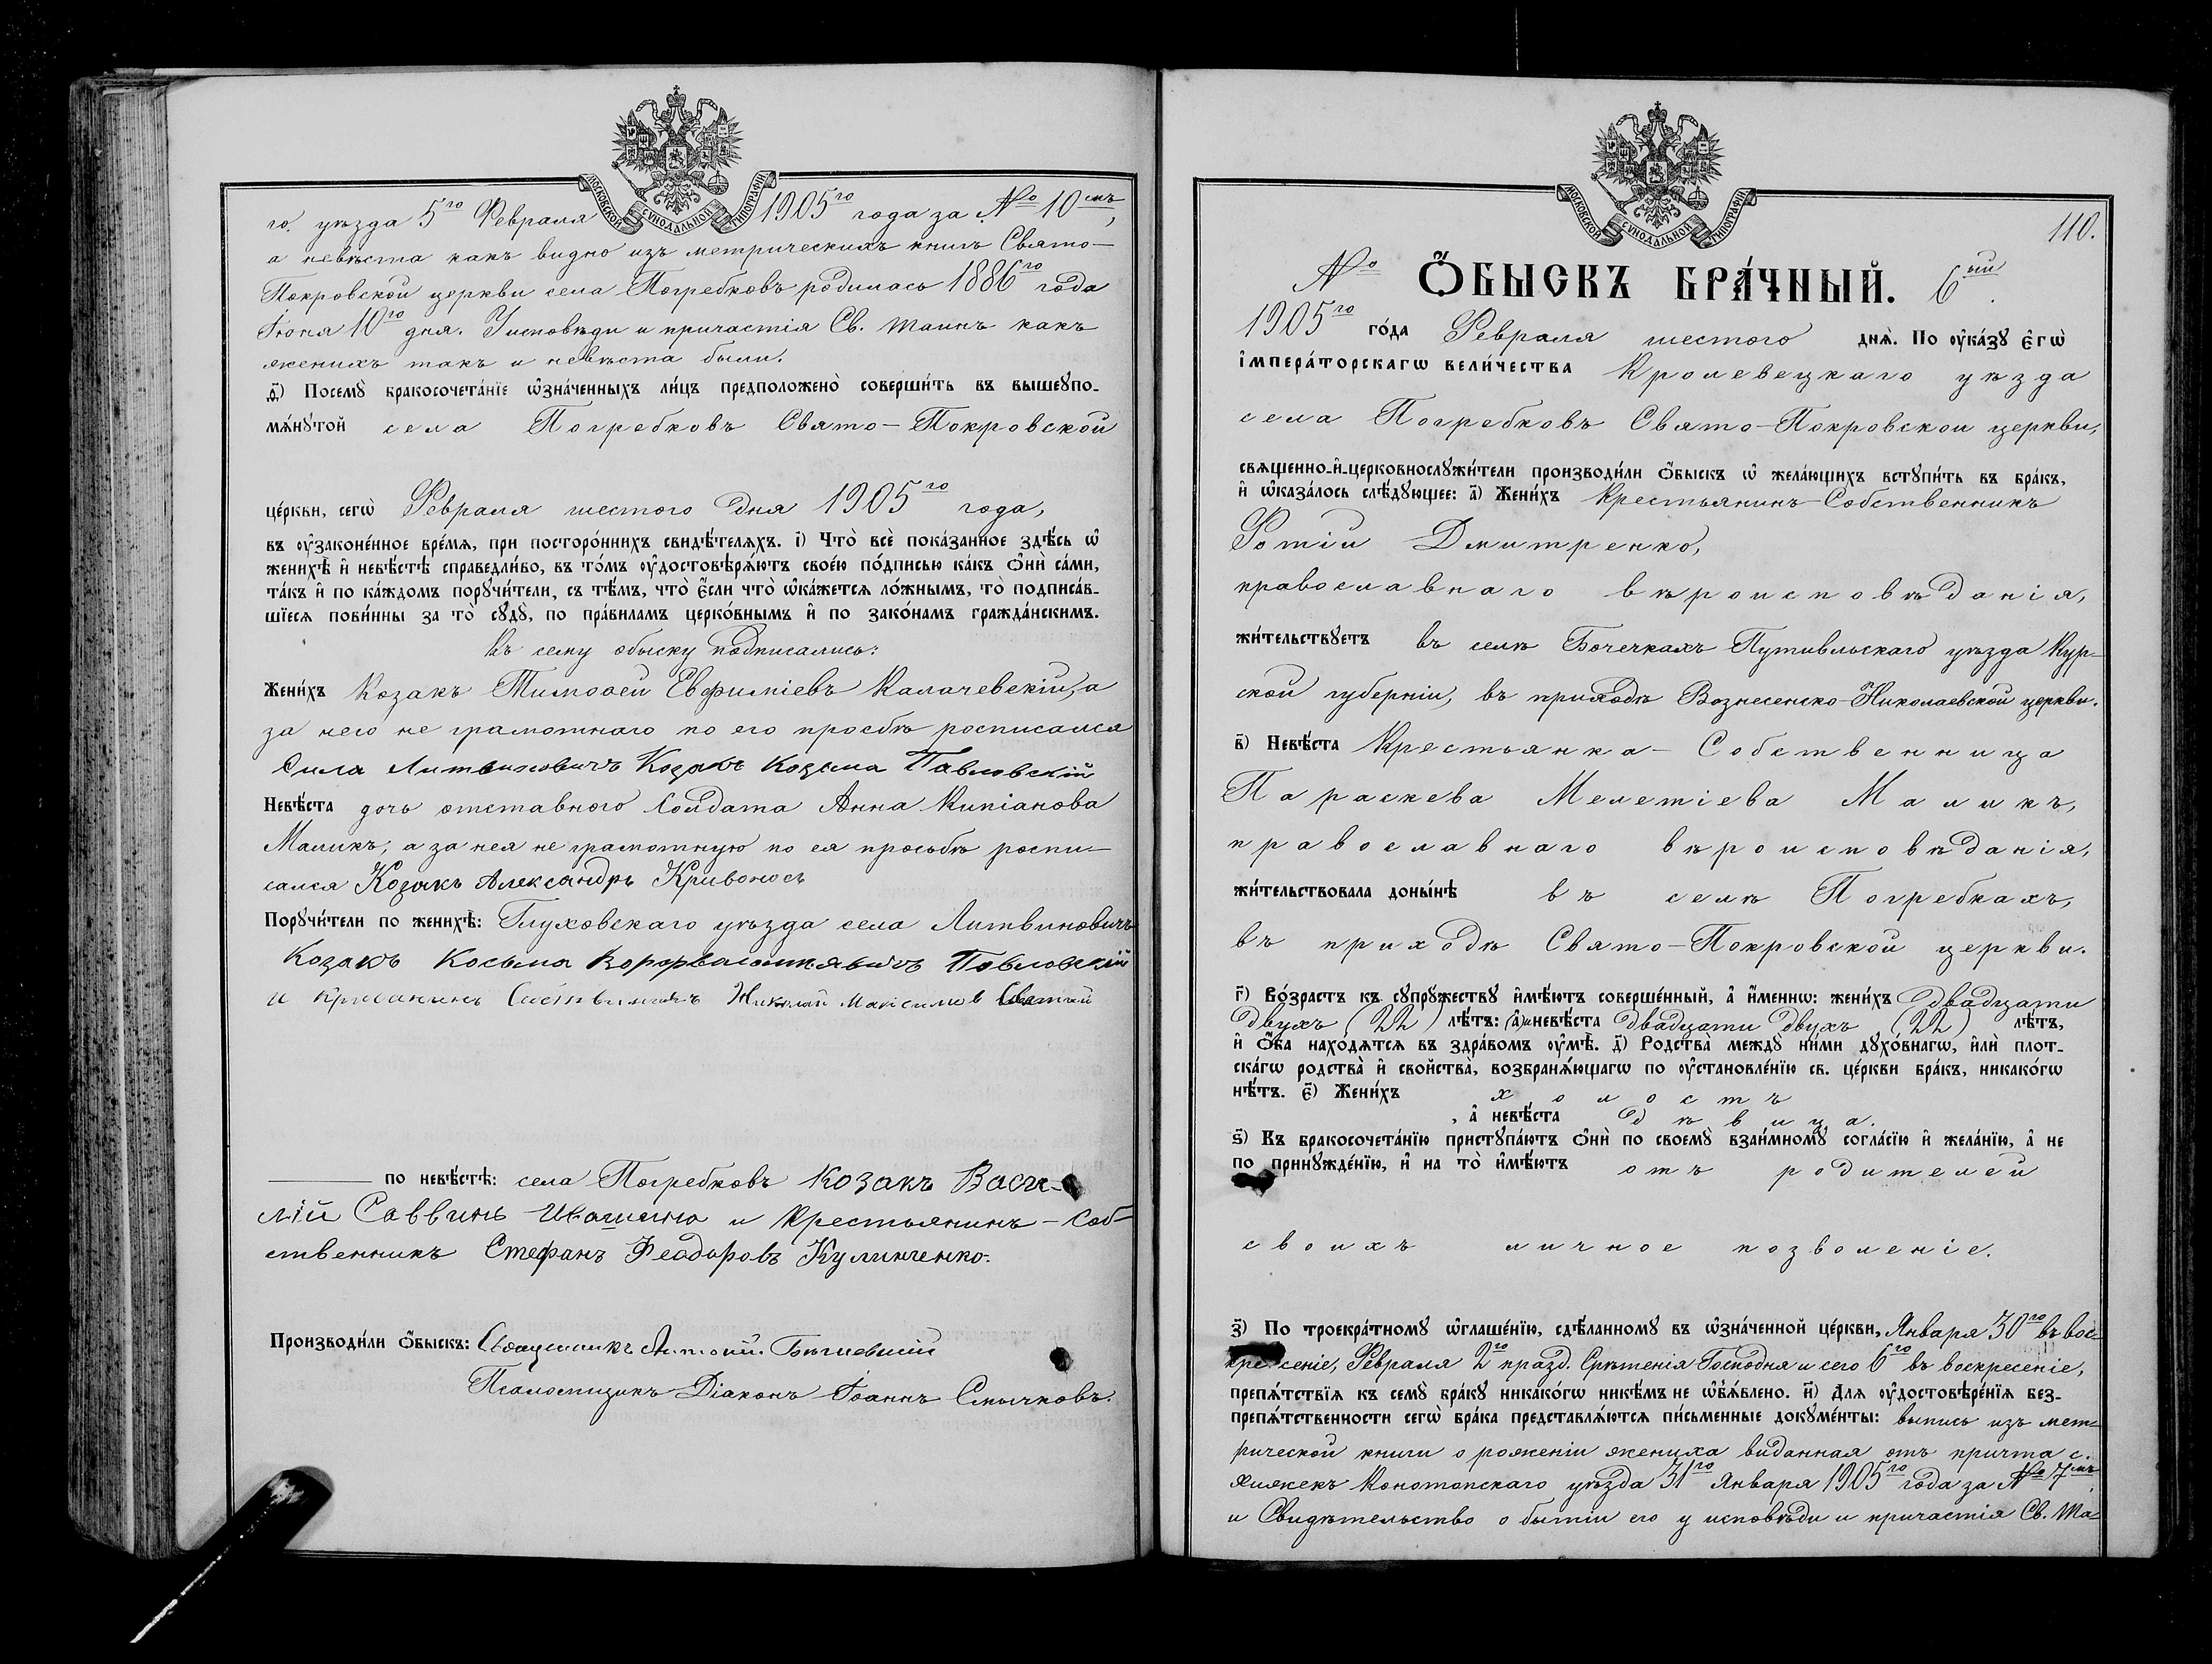 МОСКОВСКОЙ СѴНОДАЛЬНОЙ ТИПОГРАФІИ
го. уѣзда 5го Февраля 1905го года за № 10мъ,
а невѣста какъ видно изъ метрическихъ книгъ Свято-
Покровской церкви села Погребковъ родилась 1886го года
Іюня 10го дня. Исповѣди и причастія Св. таинъ какъ
женихъ такъ и невѣста были.
ѳ҃) Посемꙋ̀ бракосочета́нїе ѡ҆зна́ченныхъ ли́цъ предположено̀ соверши́ть въ вышеꙋпо-
мѧ́нꙋтой села Погребковъ Свято-Покровской
це́ркви, сегѡ̀ Февраля шестого дня 1905го года,
въ ᲂу҆законе́нное вре́мѧ, при посторо́ннихъ свидѣ́телѧхъ. і҃) Что̀ всѐ пока́занное здѣ́сь ѡ҆
женихѣ̀ и҆ невѣ́стѣ справедли́во, въ то́мъ ᲂу҆достовѣрѧ́ютъ свое́ю по́дписью ка́къ ѻ҆нѝ са́ми,
та́къ и҆ по ка́ждомъ порꙋчи́тели, съ тѣ́мъ, что̀ є҆́сли что̀ ѡ҆ка́жетсѧ ло́жнымъ, то̀ подписа́в-
шїесѧ пови́нны за то̀ сꙋдꙋ̀, по пра́виламъ церко́внымъ и҆ по зако́намъ гражда́нскимъ.
Къ сему обыску подписались:
Жени́хъ Козакъ Тимоѳей Евфиміевъ Калачевскій, а
за него не грамотнаго по его просбѣ росписался
Села Литвиновичъ Козакъ Козьма Павловскій
Невѣ́ста дочь отставного Солдата Анна Кипіанова
Маликъ, а за нея не грамотную по ея просьбѣ роспи-
сался Козакъ Александръ Кривоносъ
Порꙋчи́тели по женихѣ̀: Глуховскаго уѣзда села Литвиновичъ
Козакъ Косьма Павловскій
и Николай Максимов
по невѣ́стѣ: села Погребковъ Козакъ Васи-
лій Саввинъ и Крестьянинъ-Соб-
ственникъ Стефанъ Ѳеодоровъ Кулинченко.
Производи́ли ѻ҆́быскъ: Священникъ
Псаломщикъ Діаконъ Іоаннъ Смычковъ.
МОСКОВСКОЙ СѴНОДАЛЬНОЙ ТИПОГРАФІИ
110.
№ Ѻ҆́БЫСКЪ БРА́ЧНЫЙ. 6ый
1905го го́да Февраля шестого днѧ̀. По ᲂу҆ка́зꙋ є҆гѡ̀
і҆мпера́торскагѡ вели́чества Кролевецкаго уѣзда
села Погребковъ Свято-Покровской церкви,
свѧще́нно-и҆-церковнослꙋжи́тели производи́ли ѻ҆́быскъ ѡ҆ жела́ющихъ встꙋпи́ть въ бра́къ,
и҆ ѡ҆каза́лось слѣ́дꙋющее: а҃) Жени́хъ Крестьянинъ-Собственникъ
Фотій Дмитренко,
православнаго вѣроисповѣданія,
жи́тельствꙋетъ въ селѣ Бочечкахъ Путивльскаго уѣзда Кур-
ской губерніи, въ приходѣ Вознесенско-Николаевской церкви.
в҃) Невѣ́ста Крестьянка-Собственница
Параскева Мелетіева Маликъ,
православнаго вѣроисповѣданія,
жи́тельствовала доны́нѣ въ селѣ Погребкахъ,
въ приходѣ Свято-Покровской церкви.
г҃) Во́зрастъ къ сꙋпрꙋ́жествꙋ и҆мѣ́ютъ соверше́нный, а҆ и҆́меннѡ: жени́хъ двадцати
двухъ (22) лѣ́тъ: а҆ невѣ́ста двадцати двухъ (22) лѣ́тъ,
и҆ ѻ҆́ба нахо́дѧтсѧ въ здра́вомъ ᲂу҆мѣ̀. д҃) Родства̀ междꙋ̀ ни́ми дꙋхо́внагѡ, и҆лѝ плот-
ска́гѡ родства̀ и҆ свойства̀, возбранѧ́ющагѡ по ᲂу҆становле́нїю св. це́ркви бра́къ, никако́гѡ
нѣ́тъ. є҃) Жени́хъ холостъ
, а҆ невѣ́ста дѣвица.
ѕ҃) Къ бракосочета́нїю пристꙋпа́ютъ ѻ҆нѝ по своемꙋ̀ взаи́мномꙋ согла́сїю и҆ жела́нїю, а҆ не
по принꙋжде́нїю, и҆ на то̀ и҆мѣ́ютъ отъ родителей
своихъ личное позволеніе.
з҃) По троекра́тномꙋ ѡ҆глаше́нїю, сдѣ́ланномꙋ въ ѡ҆зна́ченной це́ркви, Января 30го въ вос-
кресеніе, Февраля 2го празд. Срѣтенія Господня и сего 6го въ воскресеніе,
препѧ́тствїѧ къ семꙋ̀ бра́кꙋ никако́гѡ никѣ́мъ не ѡ҆б̾ѧ́влено. и҃) Длѧ ᲂу҆достовѣре́нїѧ без-
препѧ́тственности сегѡ̀ бра́ка представлѧ́ютсѧ пи́сьменные докꙋме́нты: выпись изъ мет-
рической книги о роженіи жениха виданная отъ причта с.
Хижекъ Конотопскаго уѣзда 31го Января 1905го года за № 7мъ,
и Свидѣтельство о бытіи его у исповѣди и причастія Св. Та-